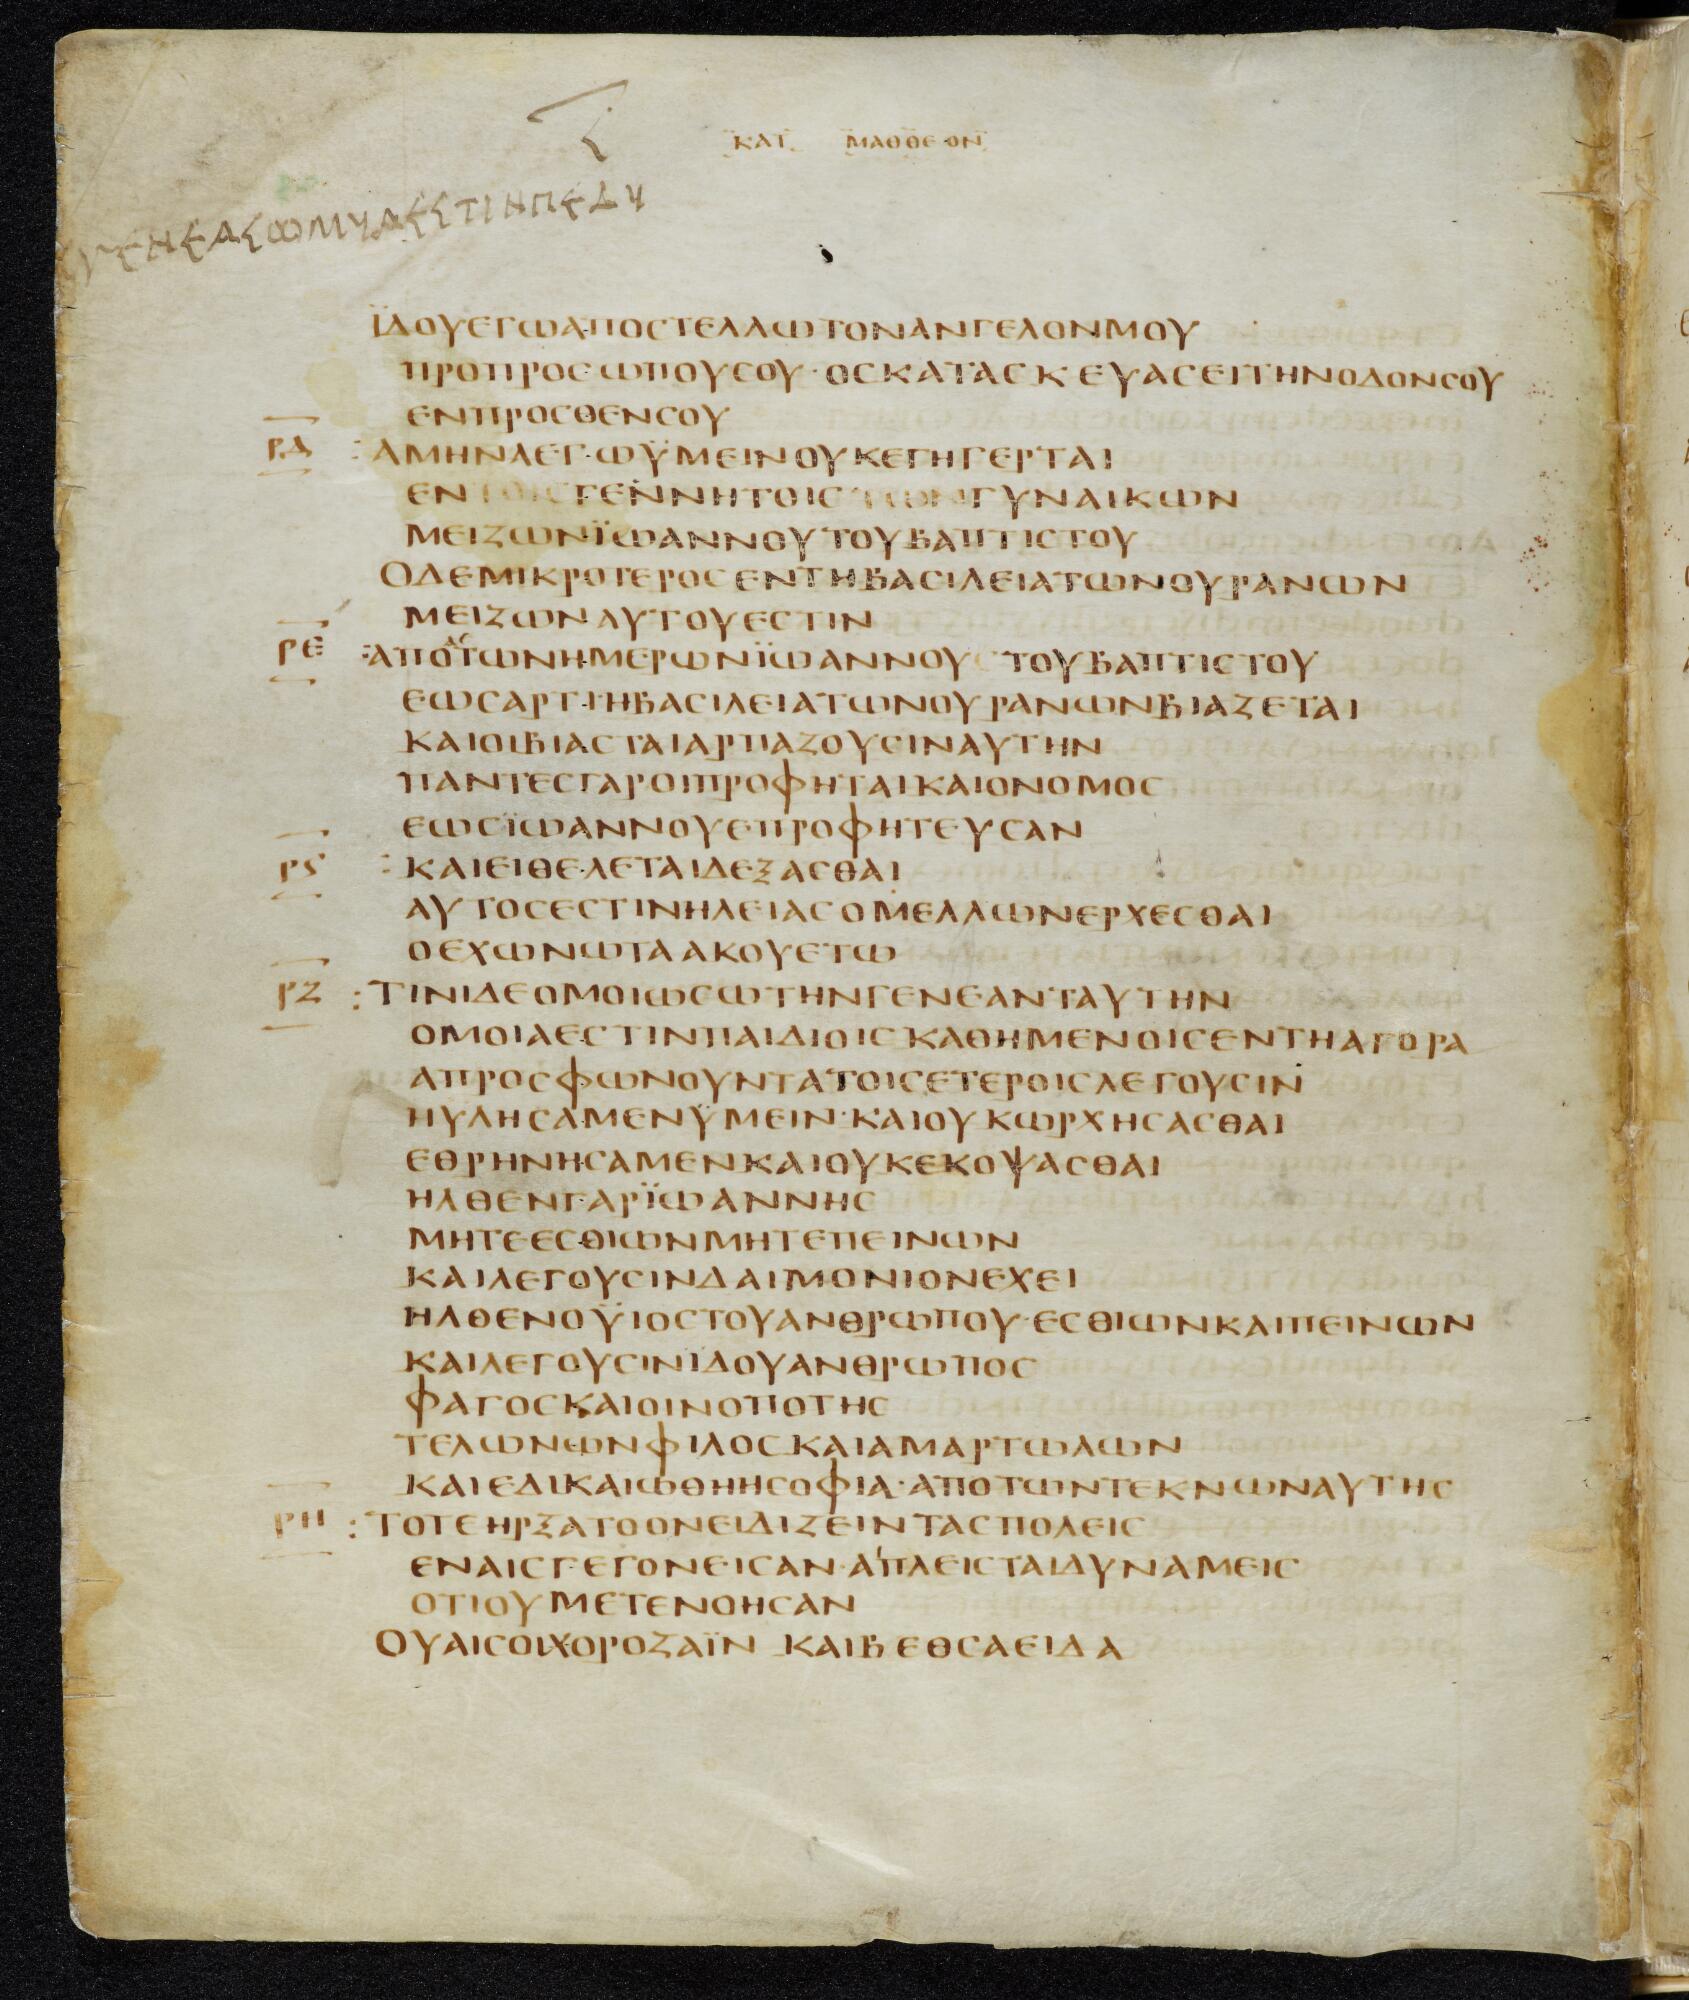 ΚΑΤ ΜΑΘΘΕΟΝ
ΪΔΟΥΕΓΩΑΠΟΣΤΕΛΛΩΤΟΝΑΝΓΕΛΟΝΜΟΥ
ΠΡΟΠΡΟΣΩΠΟΥΣΟΥ·ΟΣΚΑΤΑΣΚΕΥΑΣΕΙΤΗΝΟΔΟΝΣΟΥ
ΕΝΠΡΟΣΘΕΝΣΟΥ
ΡΔ :ΑΜΗΝΛΕΓΩΫΜΕΙΝΟΥΚΕΓΗΓΕΡΤΑΙ
ΕΝΤΟΙΣΓΕΝΝΗΤΟΙΣΤΩΝΓΥΝΑΙΚΩΝ
ΜΕΙΖΩΝΪΩΑΝΝΟΥΤΟΥΒΑΠΤΙΣΤΟΥ
ΟΔΕΜΙΚΡΟΤΕΡΟΣΕΝΤΗΒΑΣΙΛΕΙΑΤΩΝΟΥΡΑΝΩΝ
ΜΕΙΖΩΝΑΥΤΟΥΕΣΤΙΝ
ΡΕ :ΑΠΟΤΩΝΗΜΕΡΩΝΪΩΑΝΝΟΥ ΤΟΥΒΑΠΤΙΣΤΟΥ
ΕΩΣΑΡΤΙΗΒΑΣΙΛΕΙΑΤΩΝΟΥΡΑΝΩΝΒΙΑΖΕΤΑΙ
ΚΑΙΟΙΒΙΑΣΤΑΙΑΡΠΑΖΟΥΣΙΝΑΥΤΗΝ
ΠΑΝΤΕΣΓΑΡΟΙΠΡΟΦΗΤΑΙΚΑΙΟΝΟΜΟΣ
ΕΩΣΪΩΑΝΝΟΥΕΠΡΟΦΗΤΕΥΣΑΝ
ΡϚ :ΚΑΙΕΙΘΕΛΕΤΑΙΔΕΞΑΣΘΑΙ
ΑΥΤΟΣΕΣΤΙΝΗΛΕΙΑΣΟΜΕΛΛΩΝΕΡΧΕΣΘΑΙ
ΟΕΧΩΝΩΤΑΑΚΟΥΕΤΩ
ΡΖ :ΤΙΝΙΔΕΟΜΟΙΩΣΩΤΗΝΓΕΝΕΑΝΤΑΥΤΗΝ
ΟΜΟΙΑΕΣΤΙΝΠΑΙΔΙΟΙΣΚΑΘΗΜΕΝΟΙΣΕΝΤΗΑΓΟΡΑ
ΑΠΡΟΣΦΩΝΟΥΝΤΑΤΟΙΣΕΤΕΡΟΙΣΛΕΓΟΥΣΙΝ
ΗΥΛΗΣΑΜΕΝΫΜΕΙΝ·ΚΑΙΟΥΚΩΡΧΗΣΑΣΘΑΙ
ΕΘΡΗΝΗΣΑΜΕΝΚΑΙΟΥΚΕΚΟΨΑΣΘΑΙ
ΗΛΘΕΝΓΑΡΪΩΑΝΝΗΣ
ΜΗΤΕΕΣΘΙΩΝΜΗΤΕΠΕΙΝΩΝ
ΚΑΙΛΕΓΟΥΣΙΝΔΑΙΜΟΝΙΟΝΕΧΕΙ
ΗΛΘΕΝΟΫΙΟΣΤΟΥΑΝΘΡΩΠΟΥ·ΕΣΘΙΩΝΚΑΙΠΕΙΝΩΝ
ΚΑΙΛΕΓΟΥΣΙΝΙΔΟΥΑΝΘΡΩΠΟΣ
ΦΑΓΟΣΚΑΙΟΙΝΟΠΟΤΗΣ
ΤΕΛΩΝΩΝΦΙΛΟΣΚΑΙΑΜΑΡΤΩΛΩΝ
ΚΑΙΕΔΙΚΑΙΩΘΗΗΣΟΦΙΑ·ΑΠΟΤΩΝΤΕΚΝΩΝΑΥΤΗΣ
ΡΗ :ΤΟΤΕΗΡΞΑΤΟΟΝΕΙΔΙΖΕΙΝΤΑΣΠΟΛΕΙΣ
ΕΝΑΙΣΓΕΓΟΝΕΙΣΑΝ·ΑΠΛΕΙΣΤΑΙΔΥΝΑΜΕΙΣ
ΟΤΙΟΥΜΕΤΕΝΟΗΣΑΝ
ΟΥΑΙΣΟΙΧΟΡΟΖΑΪΝ ΚΑΙΒΕΘΣΑΕΙΔΑ